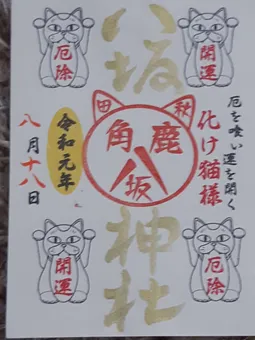 八坂神社
厄を喰い運を開く
化け猫様
秋田
鹿角
八坂
令和元年
八月十八日
開運
厄除
厄除
開運